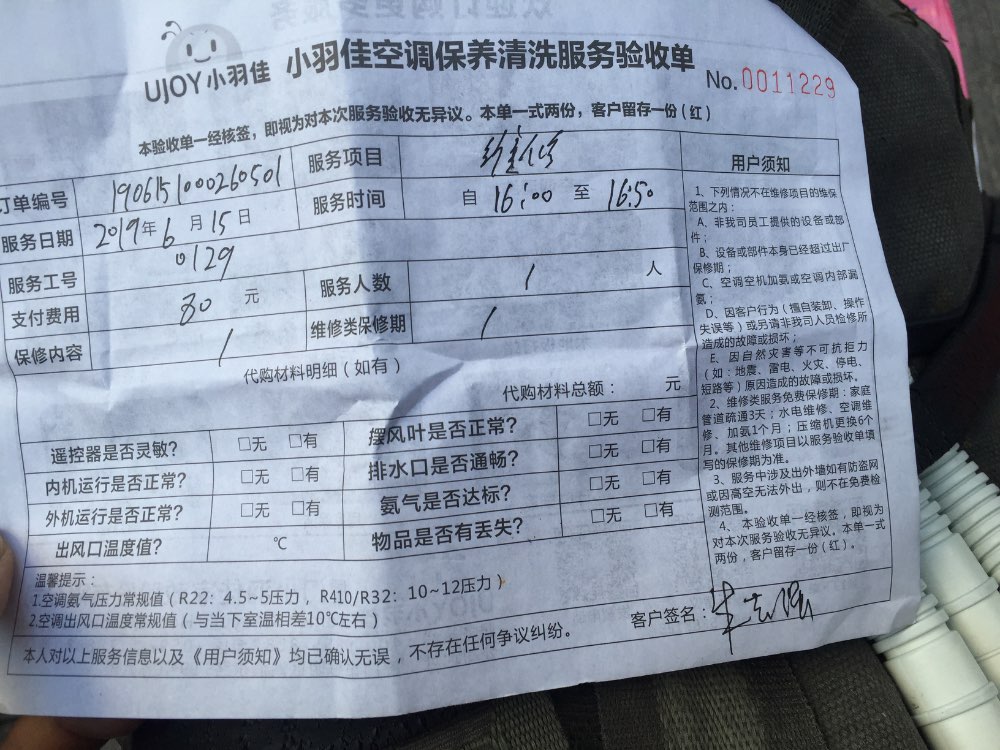 UJOY小羽佳 小羽佳空调保养清洗服务验收单
No.0011229
本验收单一经核签，即视为对本次服务验收无异议。本单一式两份，客户留存一份(红)
订单编号 1906151000260501 服务项目
服务日期 2019年6月15日 服务时间 自 16:00 至 16:50
服务工号 0129
支付费用 80 元 服务人数 1 人
保修内容 / 维修类保修期 /
代购材料明细（如有）
代购材料总额： 元
遥控器是否灵敏? □无 □有 摆风叶是否正常? □无 □有
内机运行是否正常? □无 □有 排水口是否通畅? □无 □有
外机运行是否正常? □无 □有 氨气是否达标? □无 □有
出风口温度值? ℃ 物品是否有丢失? □无 □有
温馨提示：
1.空调氨气压力常规值（R22：4.5~5压力，R410/R32：10~12压力）
2.空调出风口温度常规值（与当下室温相差10℃左右）
客户签名：
本人对以上服务信息以及《用户须知》均已确认无误，不存在任何争议纠纷。
用户须知
1、下列情况不在维修项目的维保
范围之内：
A、非我司员工提供的设备或部
件；
B、设备或部件本身已经超过出厂
保修期；
C、空调空机加氨或空调内部漏
氨；
D、因客户行为（擅自装卸、操作
失误等）或另请非我司人员检修所
造成的故障或损坏；
E、因自然灾害等不可抗拒力
（如：地震、雷电、火灾、停电、
短路等）原因造成的故障或损坏。
2、维修类服务免费保修期：家庭
管道疏通3天；水电维修、空调维
修、加氨1个月；压缩机更换6个
月。其他维修项目以服务验收单填
写的保修期为准。
3、服务中涉及出外墙如有防盗网
或因高空无法外出，则不在免费检
测范围。
4、本验收单一经核签，即视为
对本次服务验收无异议。本单一式
两份，客户留存一份（红）。